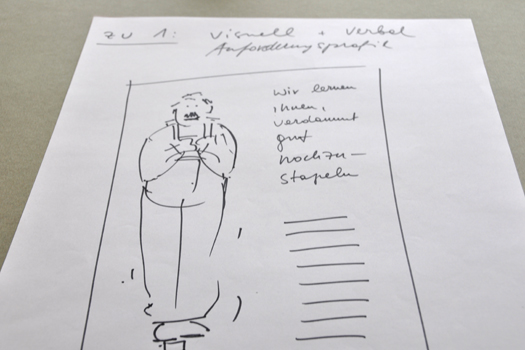 zu 1: visuell + verbal
Anforderungsprofil
Wir lernen
ihnen,
verdammt
gut
hochzu-
stapeln